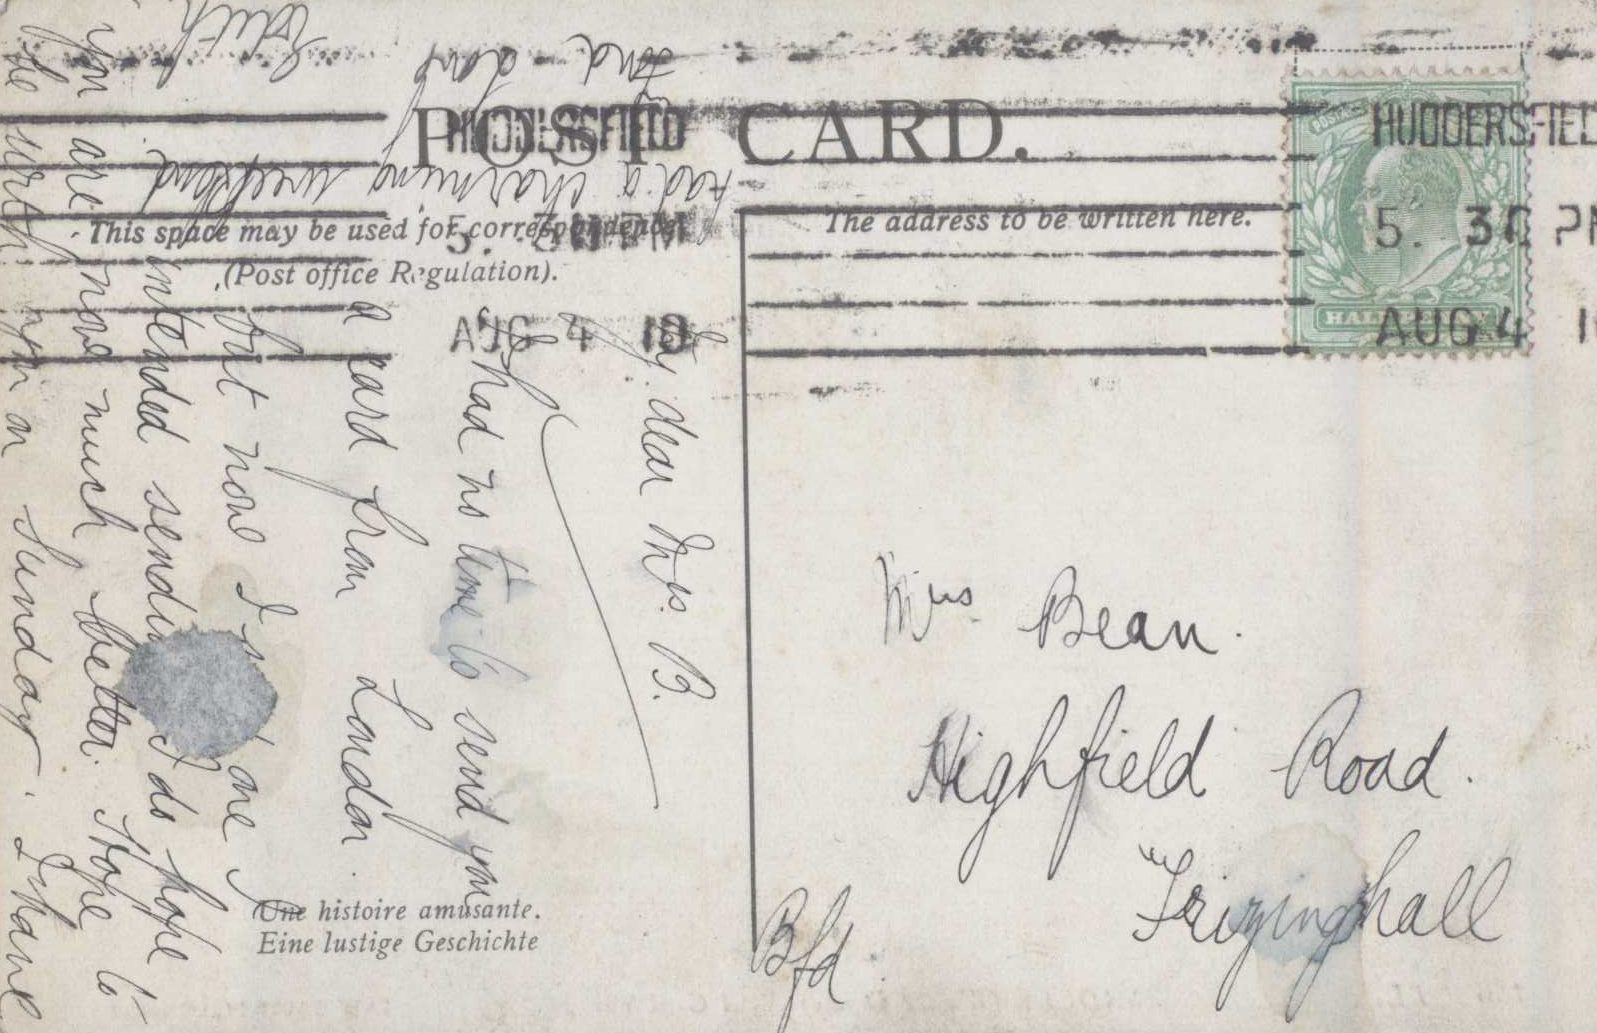 POST CARD.
This space may be used for correspondence
(Post office Regulation).
The address to be written here.
HUDDERSFIELD
5. 30 PM
AUG 4 10
HUDDERSFIELD
5. 30 PM
AUG 4 1
POSTAGE
HALFPENNY
My dear Mrs. B.
I had no time to send you
a card from London.
but now I send one I
intended sending I do hope
you are now much better. Hope to
be with you on Sunday. I have
had a charming weekend
and
love
Edith
Mrs Bean.
Highfield Road.
Frizinghall
Bfd
Une histoire amusante.
Eine lustige Geschichte